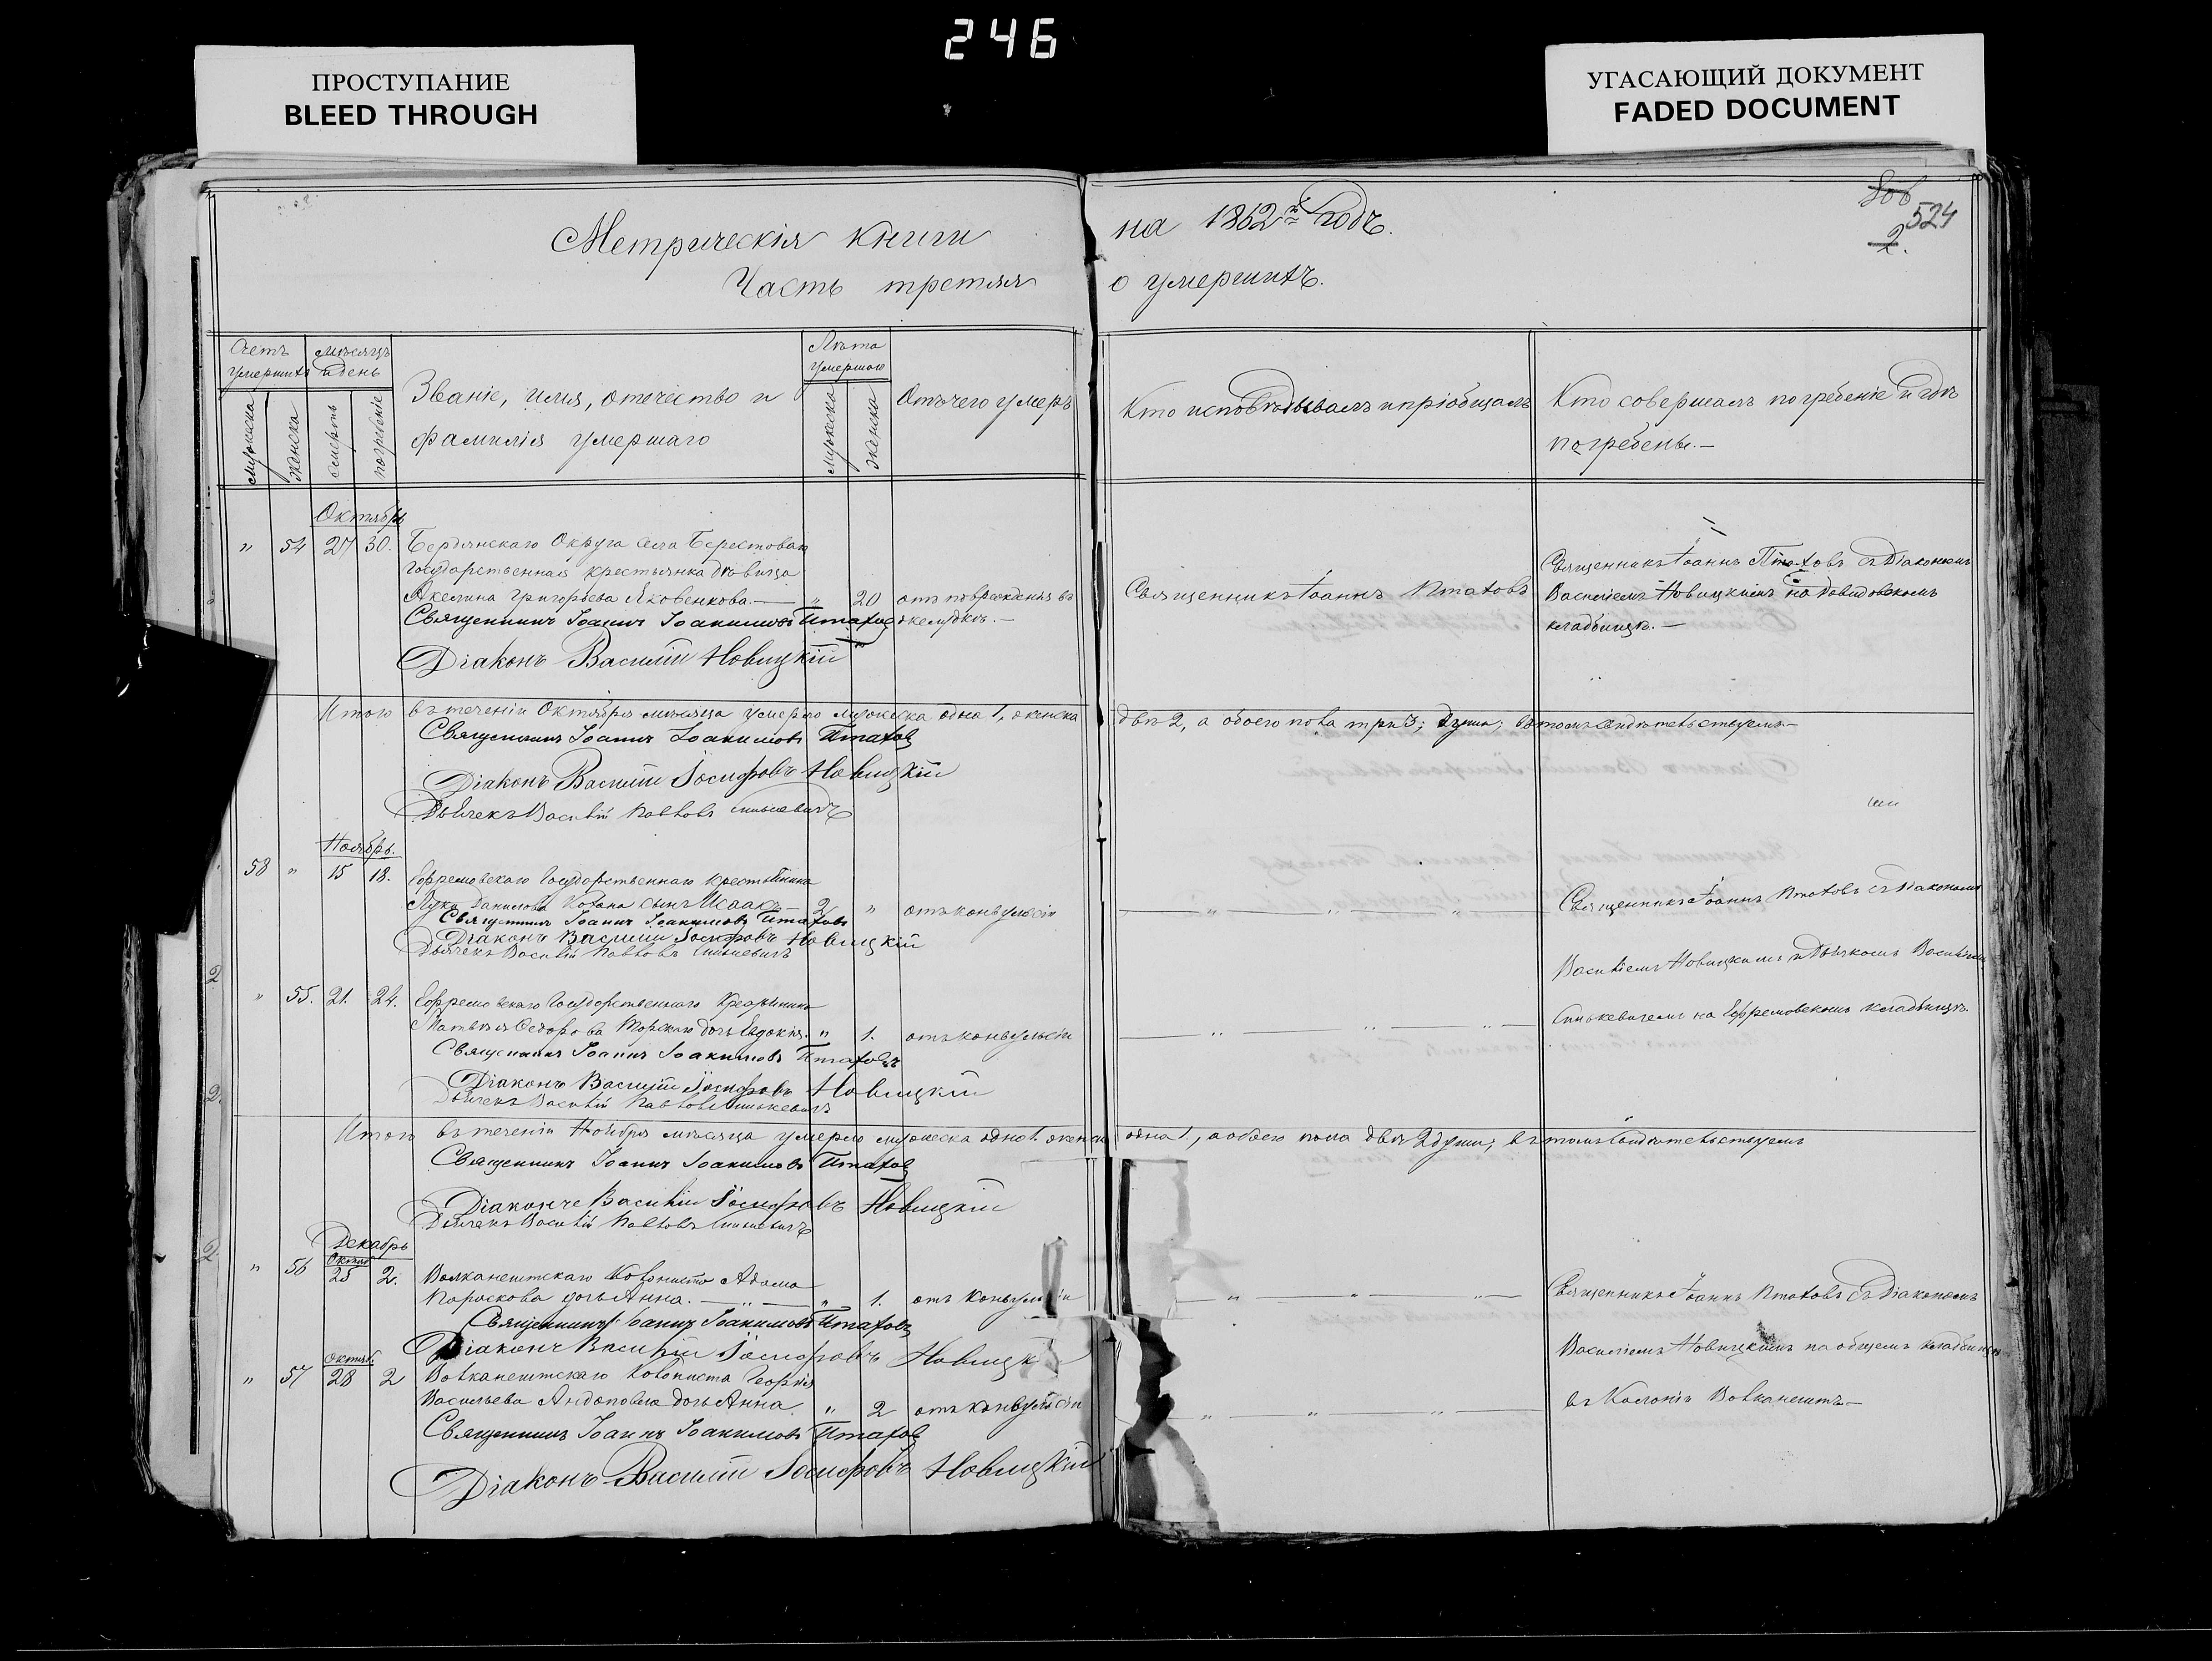 246
ПРОСТУПАНИЕ
BLEED THROUGH
УГАСАЮЩИЙ ДОКУМЕНТ
FADED DOCUMENT
524
2.
Метрическія книги на 1862й годъ.
Часть третяя о умершихъ.
Счетъ умершихъ
мужеска
женска
Мѣсяцъ и день
смерть
погребеніе
Званіе, имя, отечество и
фамилія умершаго
Лѣта умершаго
мужеска
женска
Отъ чего умеръ
Кто исповѣдывалъ и пріобщалъ
Кто совершалъ погребеніе и гдѣ
погребены.—
Октябрь
" 54 27 30. Бердянскаго Округа села Берестоваго
Государственная крестьянка дѣвица
Акелина Григорьева Яковенкова.— " 20 отъ поврежденія въ
желудкѣ.—
Священникъ Іоаннъ Птаховъ
Священникъ Іоаннъ Птаховъ съ Діакономъ
Василіемъ Новицкимъ на Давидовскомъ
кладбищѣ.—
Священникъ Іоаннъ Іоакимовъ Птаховъ
Діаконъ Василій Новицкій
Итого въ теченіи Октября мѣсяца умерло мужеска одна 1, женска двѣ 2, а обоего пола три 3; души; въ томъ свидѣтельствуемъ—
Священникъ Іоаннъ Іоакимовъ Птаховъ
Діаконъ Василій Іосифовъ Новицкій
Дьячекъ Василій Павловъ Синькевичъ
Ноябрь.
58 " 15 18. Ефремовскаго Государственнаго крестьянина
Луки Данилова сынъ Исаакъ— 2 " отъ конвульсіи
— " — " — " —
Священникъ Іоаннъ Птаховъ съ Діакономъ
Священникъ Іоаннъ Іоакимовъ Птаховъ
Діаконъ Василій Іосифовъ Новицкій
Дьячекъ Василій Павловъ Синькевичъ
Василіемъ Новицкимъ и Дьячкомъ Василіемъ
" 55. 21. 24. Ефремовскаго Государственнаго Крестьянина
Матвѣя Ѳедорова дочь Евдокія. " 1. отъ конвульсіи
— " — " — " —
Синькевичемъ на Ефремовскомъ кладбищѣ.
Священникъ Іоаннъ Іоакимовъ Птаховъ
Діаконъ Василій Іосифовъ Новицкій
Дьячекъ Василій Павловъ Синькевичъ
Итого въ теченіи Ноября мѣсяца умерло мужеска одно 1. женска одна 1, а обоего пола двѣ 2 души; въ томъ свидѣтельствуемъ
Священникъ Іоаннъ Іоакимовъ Птаховъ
Діаконъ Василій Іосифовъ Новицкій
Дьячекъ Василій Павловъ Синькевичъ
Декабрь
Октяб
" 56 25 2. Волканештскаго Колониста Адама
дочь Анна. — " — " 1. отъ конвульсіи
— " — " — " —
Священникъ Іоаннъ Птаховъ съ Діакономъ
Священникъ Іоаннъ Іоакимовъ Птаховъ
Діаконъ Василій Іосифовъ Новицкій
Василіемъ Новицкимъ на общемъ кладбищѣ
Октяб.
" 57 28 2 Волканештскаго Колониста Георгія
Васильева дочь Анна " 2 отъ конвульсіи
— " — " — " —
въ Колоніи Волканештъ—
Священникъ Іоаннъ Іоакимовъ Птаховъ
Діаконъ Василій Іосифовъ Новицкій